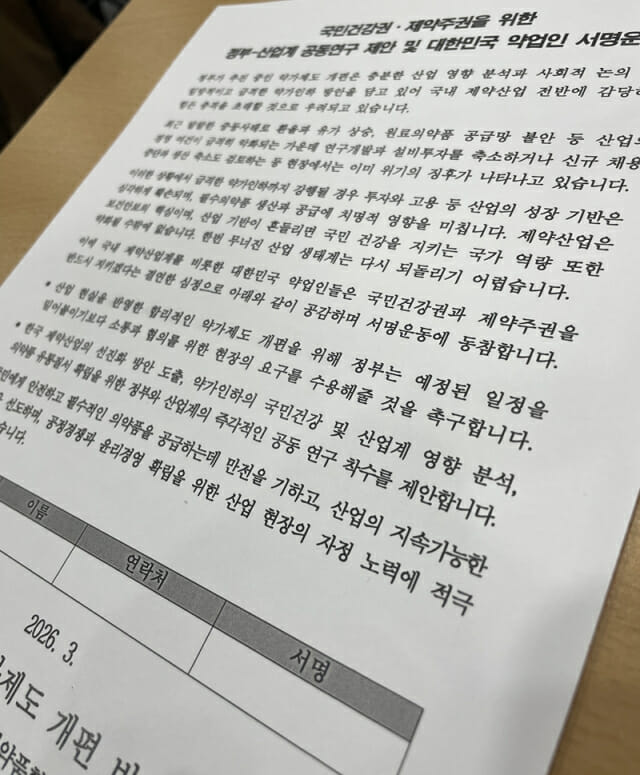 국민건강권·제약주권을 위한
정부-산업계 공동연구 제안 및 대한민국 약업인 서명운
정부가 추진 중인 약가제도 개편은 충분한 산업 영향 분석과 사회적 논의
일방적이고 급격한 약가인하 방안을 담고 있어 국내 제약산업 전반에 감당하
힘든 충격을 초래할 것으로 우려되고 있습니다.
최근 발발한 중동사태로 환율과 유가 상승, 원료의약품 공급망 불안 등 산업의
경영 여건이 급격히 악화되는 가운데 연구개발과 설비투자를 축소하거나 신규 채용
중단과 생산 축소도 검토하는 등 현장에서는 이미 위기의 징후가 나타나고 있습니다.
이러한 상황에서 급격한 약가인하까지 강행될 경우 투자와 고용 등 산업의 성장 기반은
심각하게 훼손되며, 필수의약품 생산과 공급에 치명적 영향을 미칩니다. 제약산업은
보건안보의 핵심이며, 산업 기반이 흔들리면 국민 건강을 지키는 국가 역량 또한
약화될 수밖에 없습니다. 한번 무너진 산업 생태계는 다시 되돌리기 어렵습니다.
이에 국내 제약산업계를 비롯한 대한민국 약업인들은 국민건강권과 제약주권을
반드시 지키겠다는 결연한 심정으로 아래와 같이 공감하며 서명운동에 동참합니다.
* 산업 현실을 반영한 합리적인 약가제도 개편을 위해 정부는 예정된 일정을
밀어붙이기보다 소통과 협의를 위한 현장의 요구를 수용해줄 것을 촉구합니다.
* 한국 제약산업의 선진화 방안 도출, 약가인하의 국민건강 및 산업계 영향 분석,
의약품 유통질서 확립을 위한 정부와 산업계의 즉각적인 공동 연구 착수를 제안합니다.
민에게 안전하고 필수적인 의약품을 공급하는데 만전을 기하고, 산업의 지속가능한
선도하며, 공정경쟁과 윤리경영 확립을 위한 산업 현장의 자정 노력에 적극
습니다.
이름
연락처
서명
2026. 3.
제도 개편 비
약품